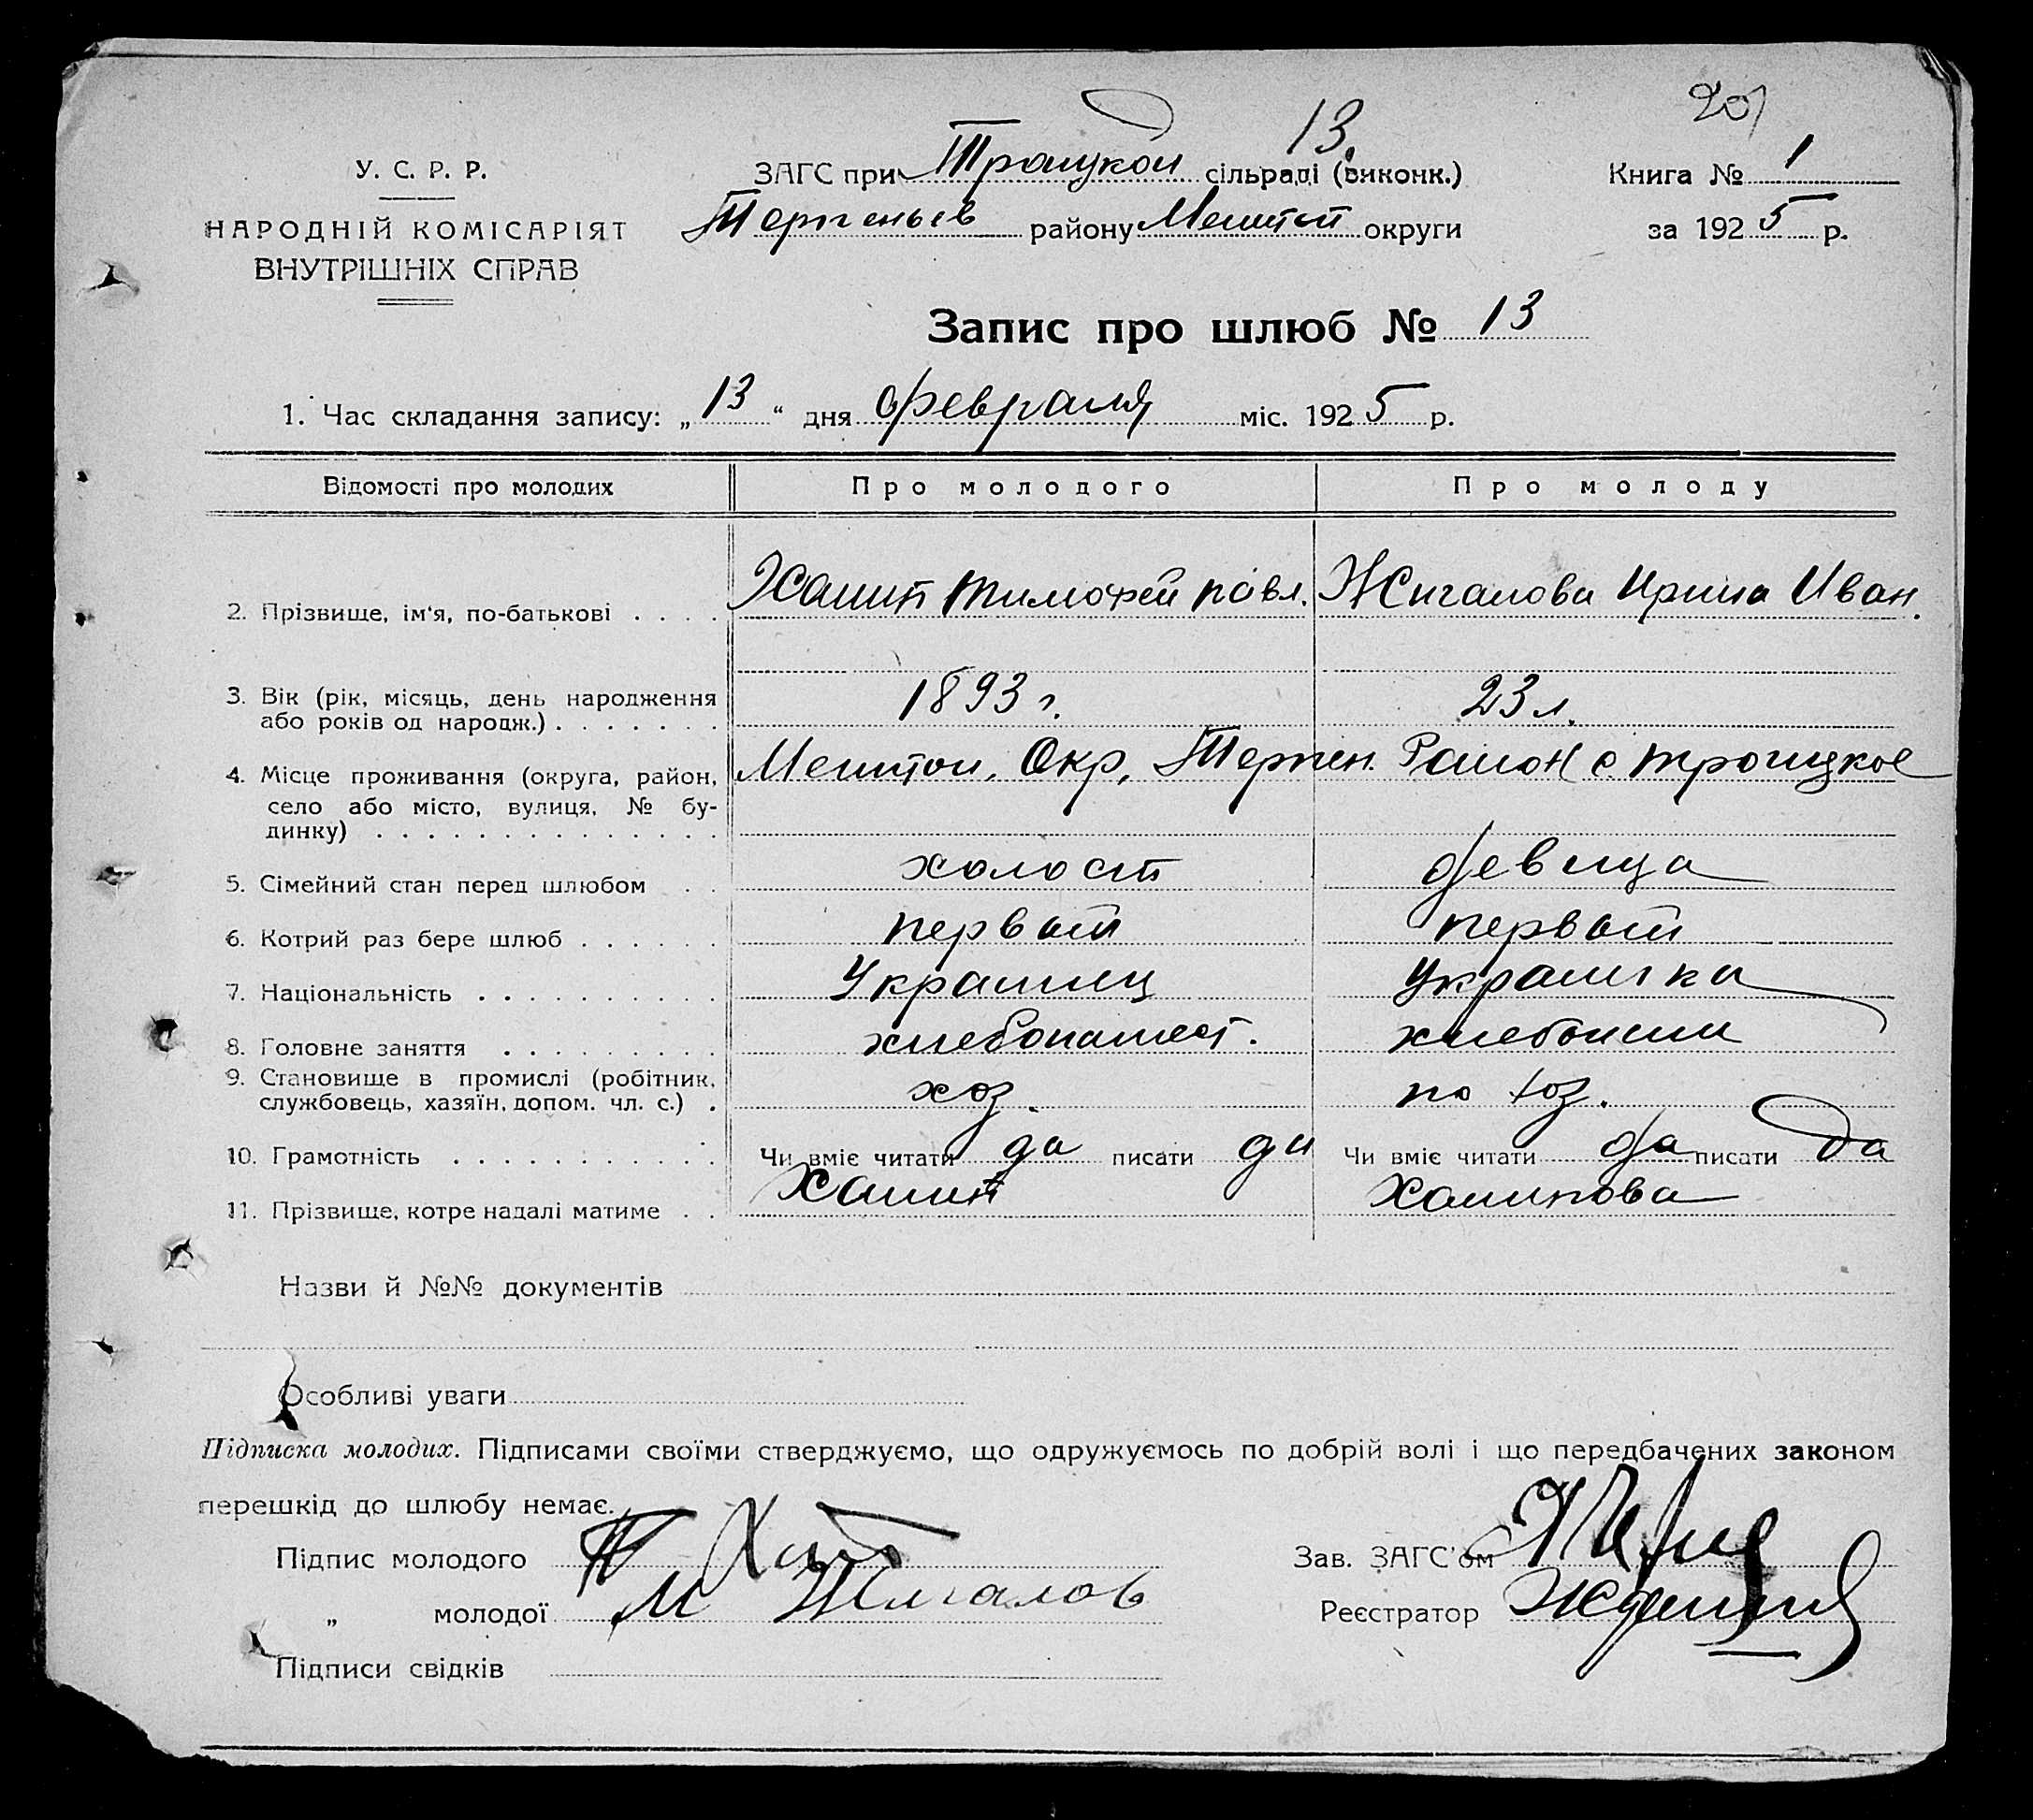 201
13.
У. С. Р. Р.
НАРОДНІЙ КОМІСАРІЯТ
ВНУТРІШНІХ СПРАВ
ЗАГС при Троицкой сільраді (виконк.)
Терпеньев району Мелитоп округи
Книга № 1
за 1925 р.
Запис про шлюб № 13
1. Час складання запису: „13“ дня февраля міс. 1925 р.
Відомості про молодих Про молодого Про молоду
2. Прізвище, ім‘я, по-батькові . . . . Хапит Тимофей павл. Жигалова Ирина Иван.
3. Вік (рік, місяць, день народження
або років од народж.) . . . . . . . 1893 г. 23 л.
4. Місце проживання (округа, район,
Мелитоп. Окр, Терпен. Район с. Троицкое
село або місто, вулиця, № бу-
динку) . . . . . . . . . . . . . .
5. Сімейний стан перед шлюбом . . холост девица
6. Котрий раз бере шлюб . . . . . . первый первый
7. Національність . . . . . . . . . . Украинец Украинка
8. Головне заняття . . . . . . . . . хлебопашест. хлебопаш
9. Становище в промислі (робітник,
службовець, хазяїн, допом. чл. с.) . хоз. по хоз.
10. Грамотність . . . . . . . . . . . Чи вміє читати да писати да Чи вміє читати да писати да
11. Прізвище, котре надалі матиме . .
Назви й №№ документів
Особливі уваги
Підписка молодих. Підписами своїми стверджуємо, що одружуємось по добрій волі і що передбачених законом
перешкід до шлюбу немає.
Підпис молодого
Зав. ЗАГС’ом
„ молодої Жигалов
Реєстратор
Підписи свідків